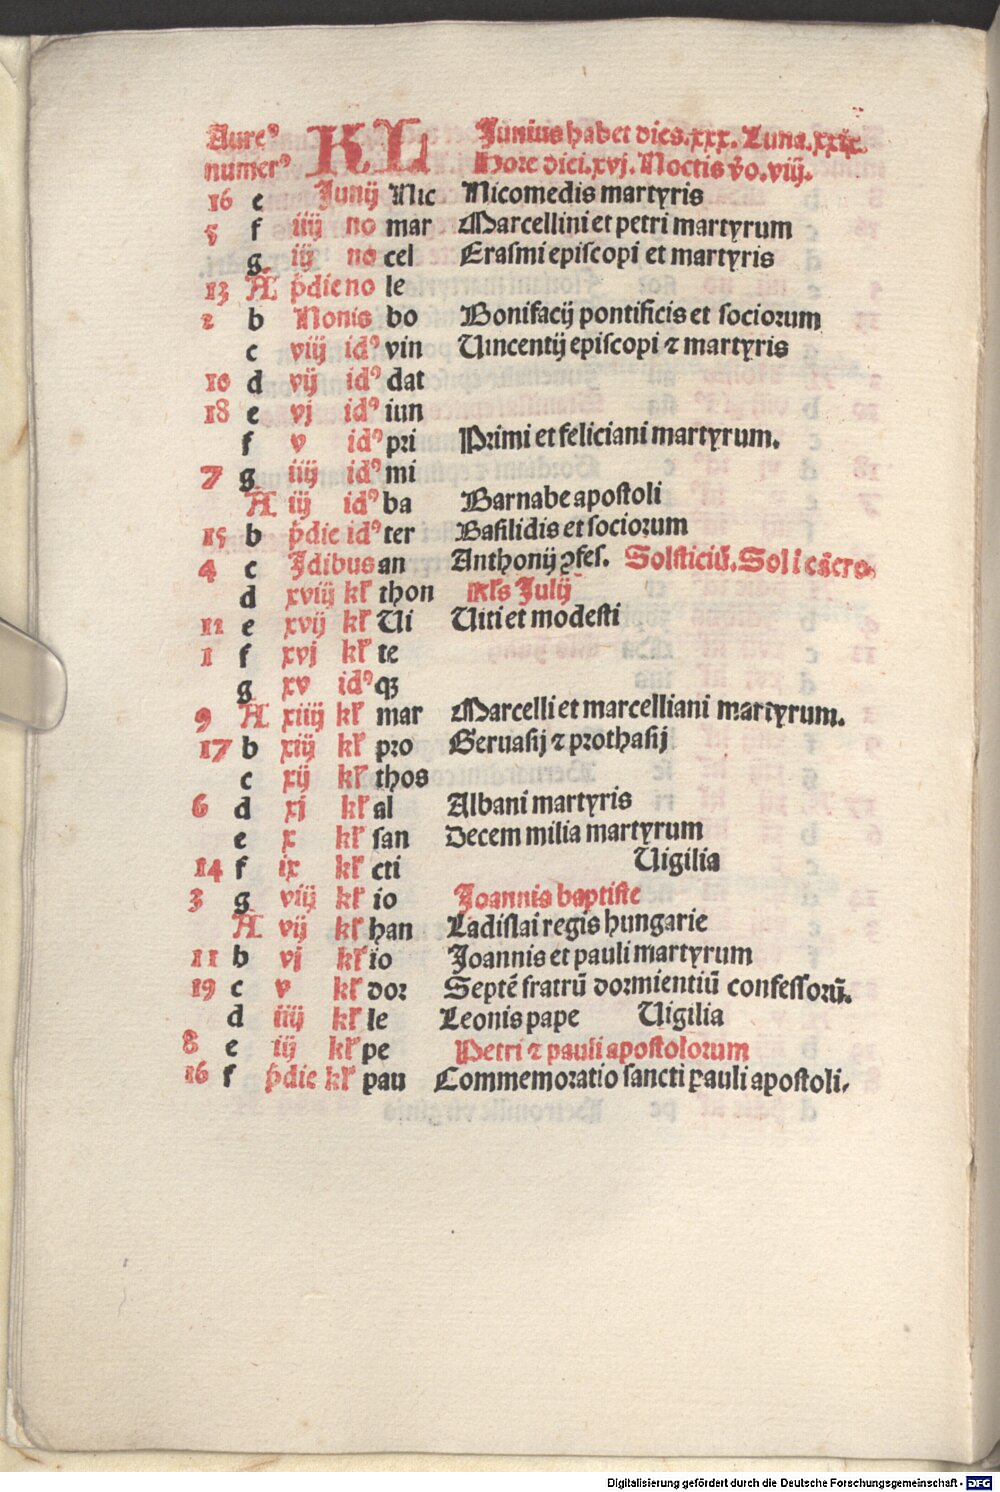 Aureꝰ KL Junius habet dies.xxx. Luna.xxix.
numerꝰ Hore diei.xvj. Noctis ꝟo.viij.
16 e Junij Nic Nicomedis martyris
5 f iiij no mar Marcellini et petri martyrum
g iij no cel Erasmi episcopi et martyris
13 A p̄die no le
2 b Nonis bo Bonifacij pontificis et sociorum
c viij idꝰ vin Vincentij episcopi ⁊ martyris
10 d vij idꝰ dat
18 e vj idꝰ iun
f v idꝰ pri Primi et feliciani martyrum.
7 g iiij idꝰ mi
A iij idꝰ ba Barnabe apostoli
15 b p̄die idꝰ ter Basilidis et sociorum
4 c Idibus an Anthonij ꝯfes. Solsticiū. Sol i cācro.
d xviij kľ thon kľs Julij
12 e xvij kľ Vi Viti et modesti
1 f xvj kľ te
g xv idꝰ qꝫ
9 A xiiij kľ mar Marcelli et marcelliani martyrum.
17 b xiij kľ pro Geruasij ⁊ prothasij
c xij kľ thos
6 d xj kľ al Albani martyris
e x kľ san Decem milia martyrum
14 f ix kľ cti Vigilia
3 g viij kľ io Joannis baptiste
A vij kľ han Ladislai regis hungarie
11 b vj kľ io Joannis et pauli martyrum
19 c v kľ dor Septē fratrū dormientiū confessorū.
d iiij kľ le Leonis pape Vigilia
8 e iij kľ pe Petri ⁊ pauli apostolorum
16 f p̄die kľ pau Commemoratio sancti pauli apostoli.
Digitalisierung gefördert durch die Deutsche Forschungsgemeinschaft - DFG